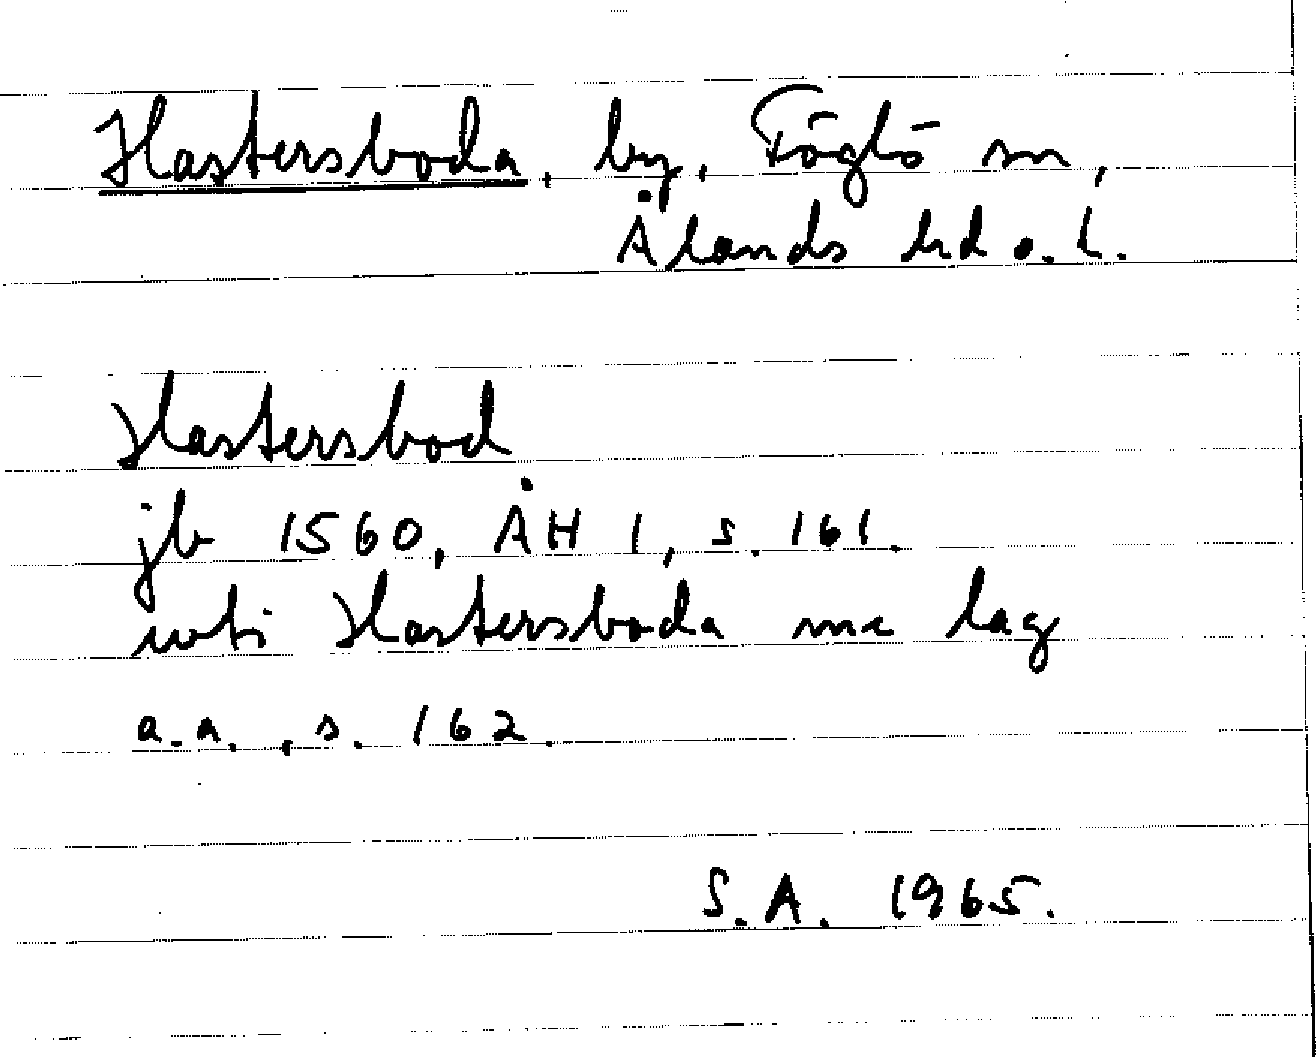 Hastersboda, by, Föglö sn,
Ålands hd o. l.
Hastersbod
jb 1560, ÅH 1, s. 161.
uti Hastersboda me lag
a.a., s. 162.
S.A. 1965.